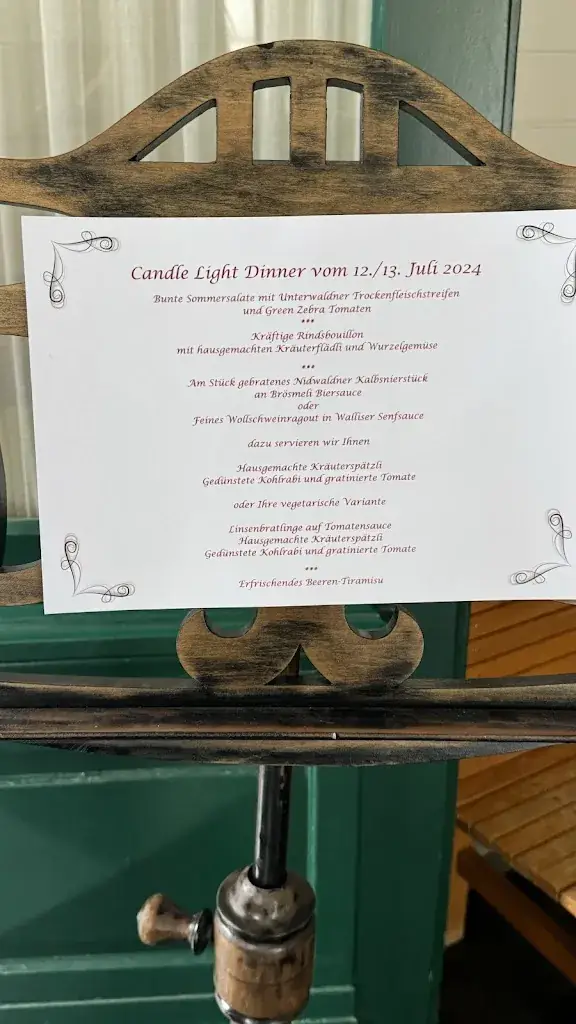 Candle Light Dinner vom 12./13. Juli 2024
Bunte Sommersalate mit Unterwaldner Trockenfleischstreifen
und Green Zebra Tomaten
***
Kräftige Rindsbouillon
mit hausgemachten Kräuterflädli und Wurzelgemüse
***
Am Stück gebratenes Nidwaldner Kalbsnierstück
an Brösmeli Biersauce
oder
Feines Wollschweinragout in Walliser Senfsauce
dazu servieren wir Ihnen
Hausgemachte Kräuterspätzli
Gedünstete Kohlrabi und gratinierte Tomate
oder Ihre vegetarische Variante
Linsenbratlinge auf Tomatensauce
Hausgemachte Kräuterspätzli
Gedünstete Kohlrabi und gratinierte Tomate
***
Erfrischendes Beeren-Tiramisu